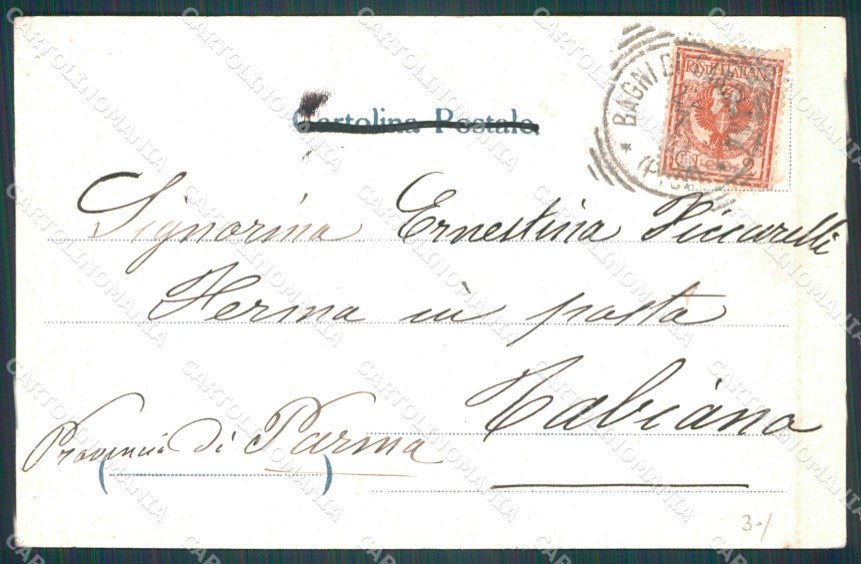 Cartolina Postale
BAGNI D
POSTE ITALIANE
CEN. 2
Signorina Ernestina Ficcarelli
Ferma in posta
Tabiano
Provincia di Parma
( )
3-/
CARTOLINOMANIA